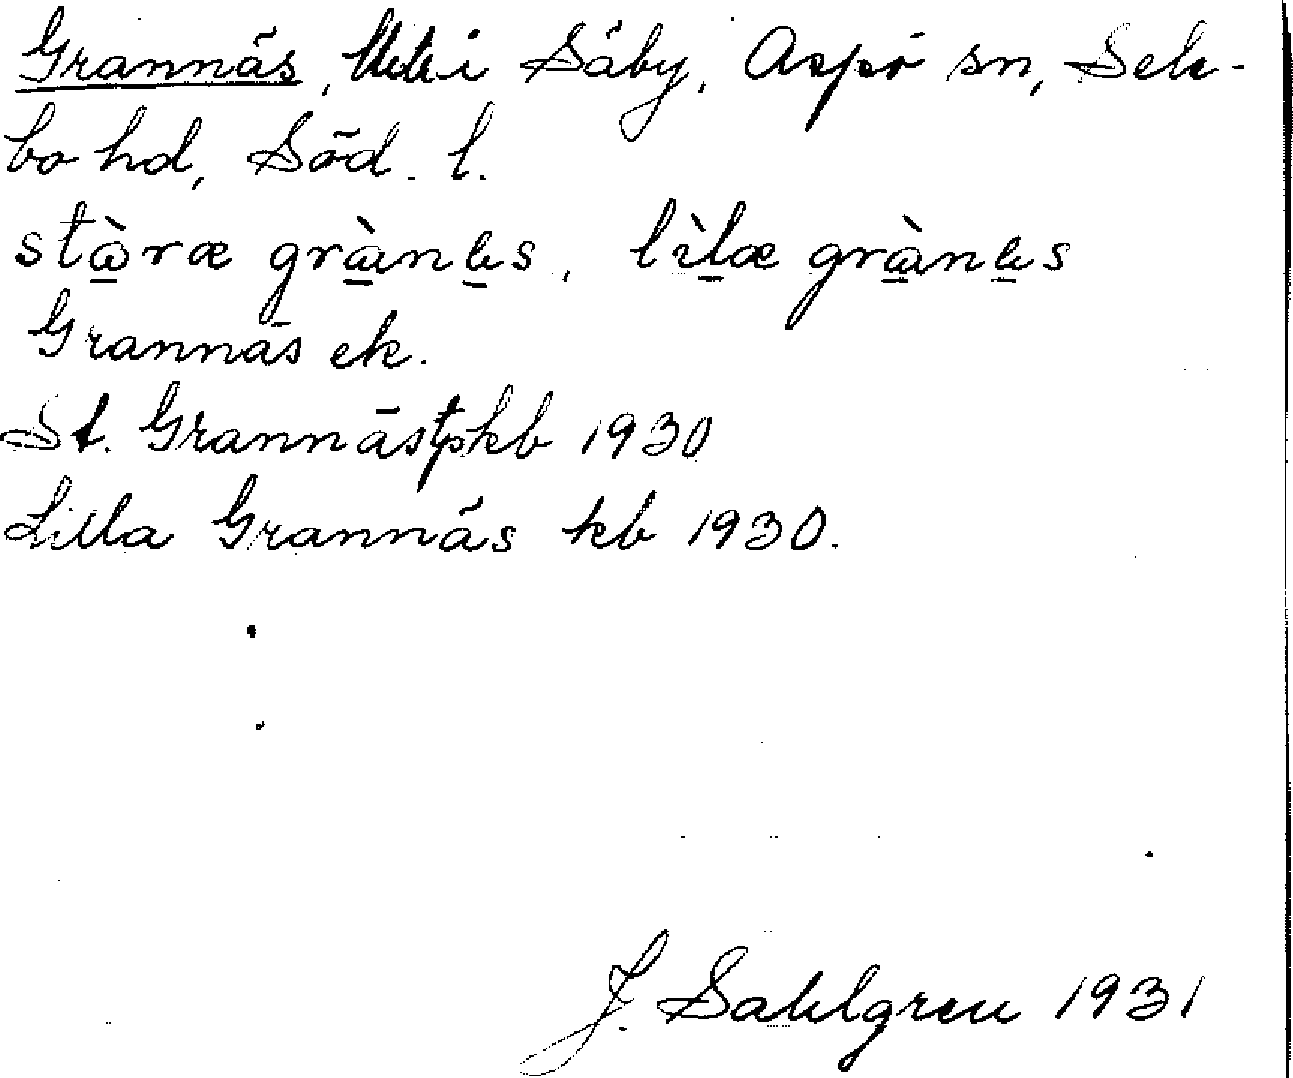 Grannäs, i Säby, Aspö sn, Sele-
bo hd, Söd. l.
stòræ grànäs, lìlæ grànäs
Grannäs ek.
St. Grannäs kb 1930
Lilla Grannäs kb 1930.
J. Sahlgren 1931